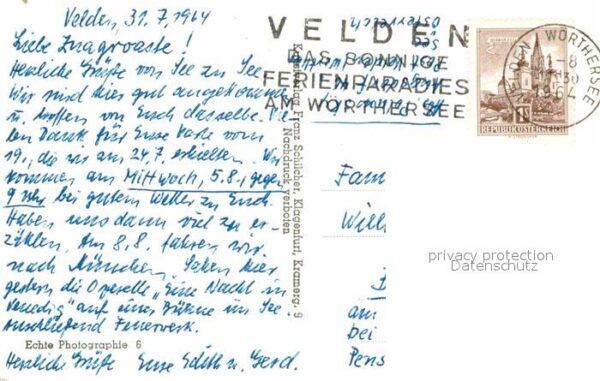 Velden, 31.7.1964
Liebe
Herzliche Grüße vom See zu See
Wir sind hier gut angekommen
u. hoffen von Euch dasselbe. Vie-
len Dank für Eure Karte vom
19., die wir am 24.7. erhielten. Wir
kommen am Mittwoch, 5.8., gegen
9 Uhr bei gutem Wetter zu Euch.
Haben uns dann viel zu er-
zählen. Am 8.8. fahren wir
nach München. Sahen hier
gestern die Operette "Eine Nacht in
Venedig" auf einer Bühne im See.
Anschließend Feuerwerk.
Echte Photographie 6
Herzliche Grüße Eure Edith u. Gerd.
Franz Schilcher, Klagenfurt, Kramerg. 9
Nachdruck verboten
VELDEN
DAS SONNIGE
FERIENPARADIES
AM WÖRTHERSEE
WÖRTHERSEE
REPUBLIK ÖSTERREICH
Fam
Will
am
bei
Pens
privacy protection
Datenschutz